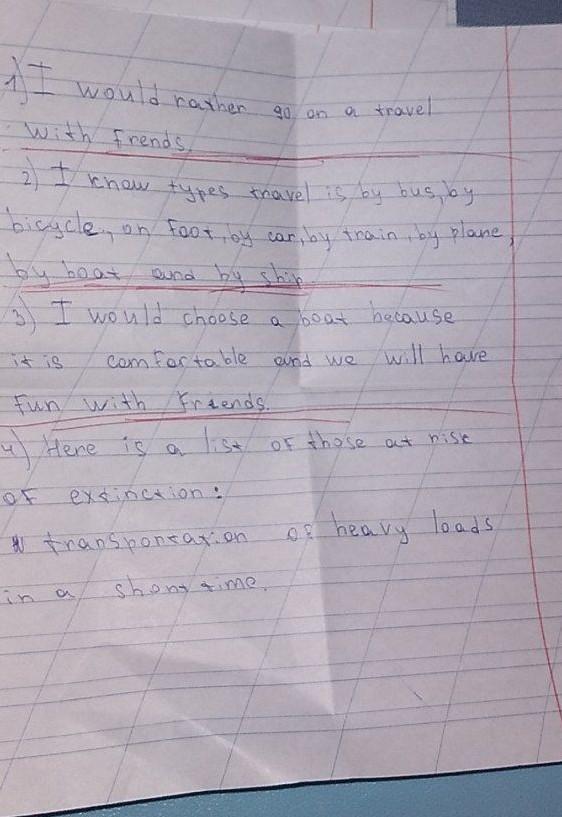 1) I would rather go on a travel
with frends.
2) I know types travel is by bus, by
bicycle, on foot, by car, by train, by plane,
by boat and by ship.
3) I would choose a boat because
it is comfortable and we will have
fun with friends.
4) Here is a list of those at risk
of extinction:
transportation of heavy loads
in a short time.